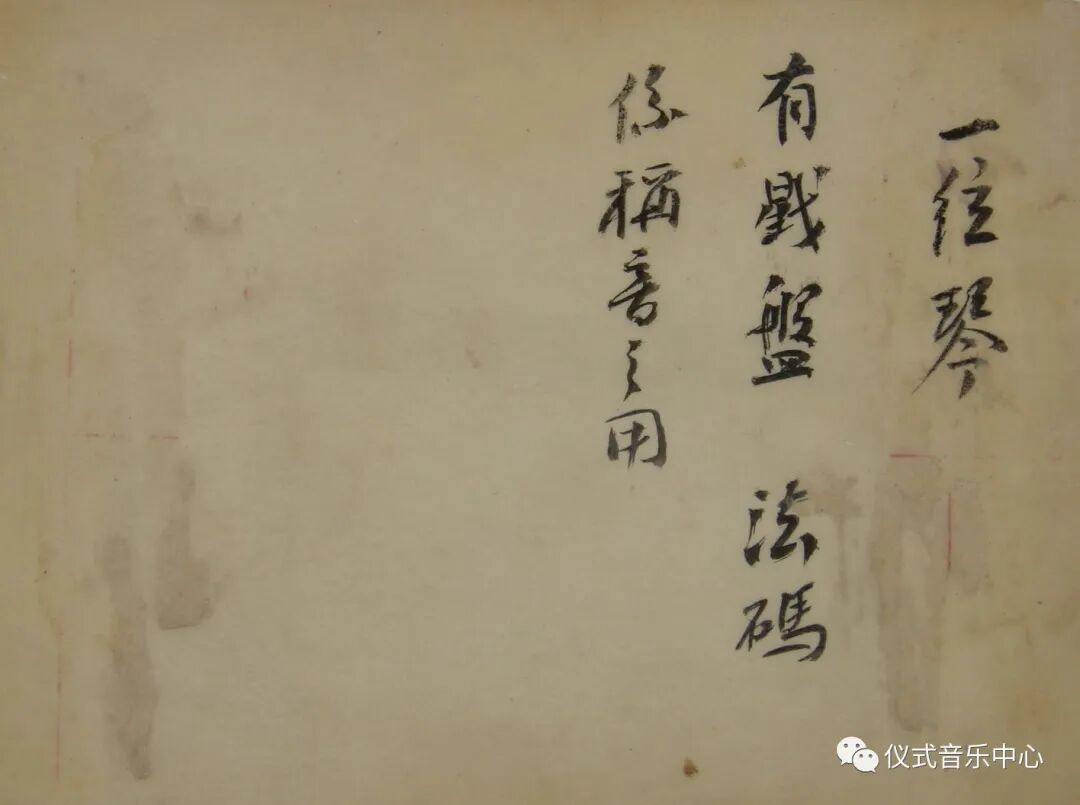 一琴
有戥盤 法碼
係稱音之用
仪式音乐中心